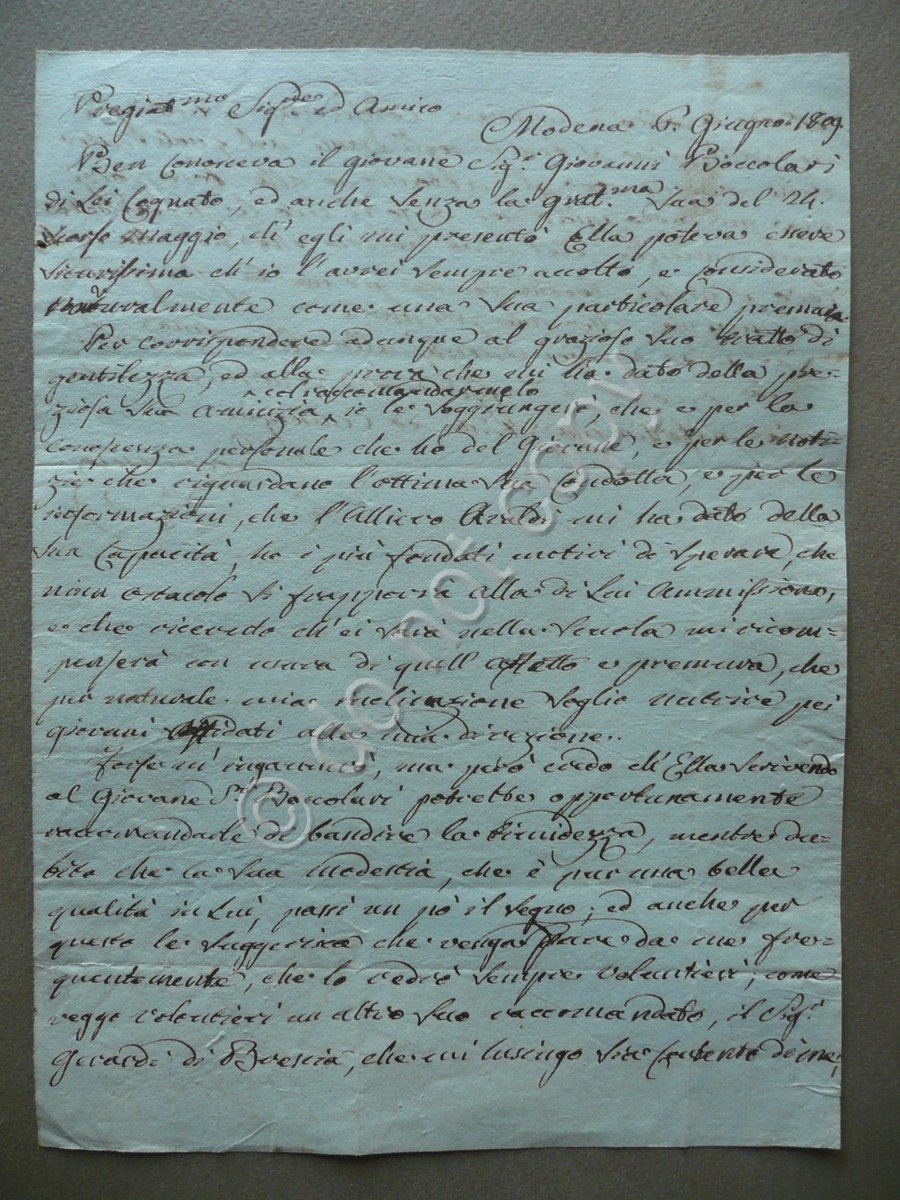 Pregiat.mo Sig.re ed Amico
Modena 6. Giugno 1809.
Ben conosceva il giovane Sig.r Giovanni Boccolari
di Lei Cognato, ed anche senza la grat.ma Sua del 24.
scorso maggio, ch'egli mi presentò Ella poteva essere
sicurissima ch'io l'avrei sempre accolto, e considerato
naturalmente come una sua particolare premura.
Per corrispondere adunque al grazioso suo tratto di
gentilezza, ed alla prova che mi ha dato della pre-
col raccomandarmelo
ziosa sua amicizia, io le soggiungerò, che e per la
conoscenza personale che ho del Giovane, e per le noti-
zie che riguardano l'ottima sua Condotta, e per le
informazioni, che l'Allievo Araldi mi ha dato della
sua Capacità, ho i più fondati motivi di sperare, che
niun ostacolo si frapporrà alla di Lui Ammissione,
e che ricevuto ch'ei sarà nella Scuola mi ricom-
penserà con usura di quell'affetto e premura, che
per naturale mia inclinazione soglio nutrire pei
giovani affidati alla mia direzione.
Forse m'ingannerò, ma però credo ch'Ella scrivendo
al Giovane S.r Boccolari potrebbe opportunamente
raccomandarle di bandire la timidezza, mentre du-
bito che la sua modestia, che è pur una bella
qualità in Lui, passi un pò il segno; ed anche per
questo le suggerisca che venga pure da me fre-
quentemente, che lo vedrò sempre volentieri; come
veggo volentieri un altro suo raccomandato, il Sig.r
Girardi di Brescia, che mi lusingo sia contento di me,
© do not copy